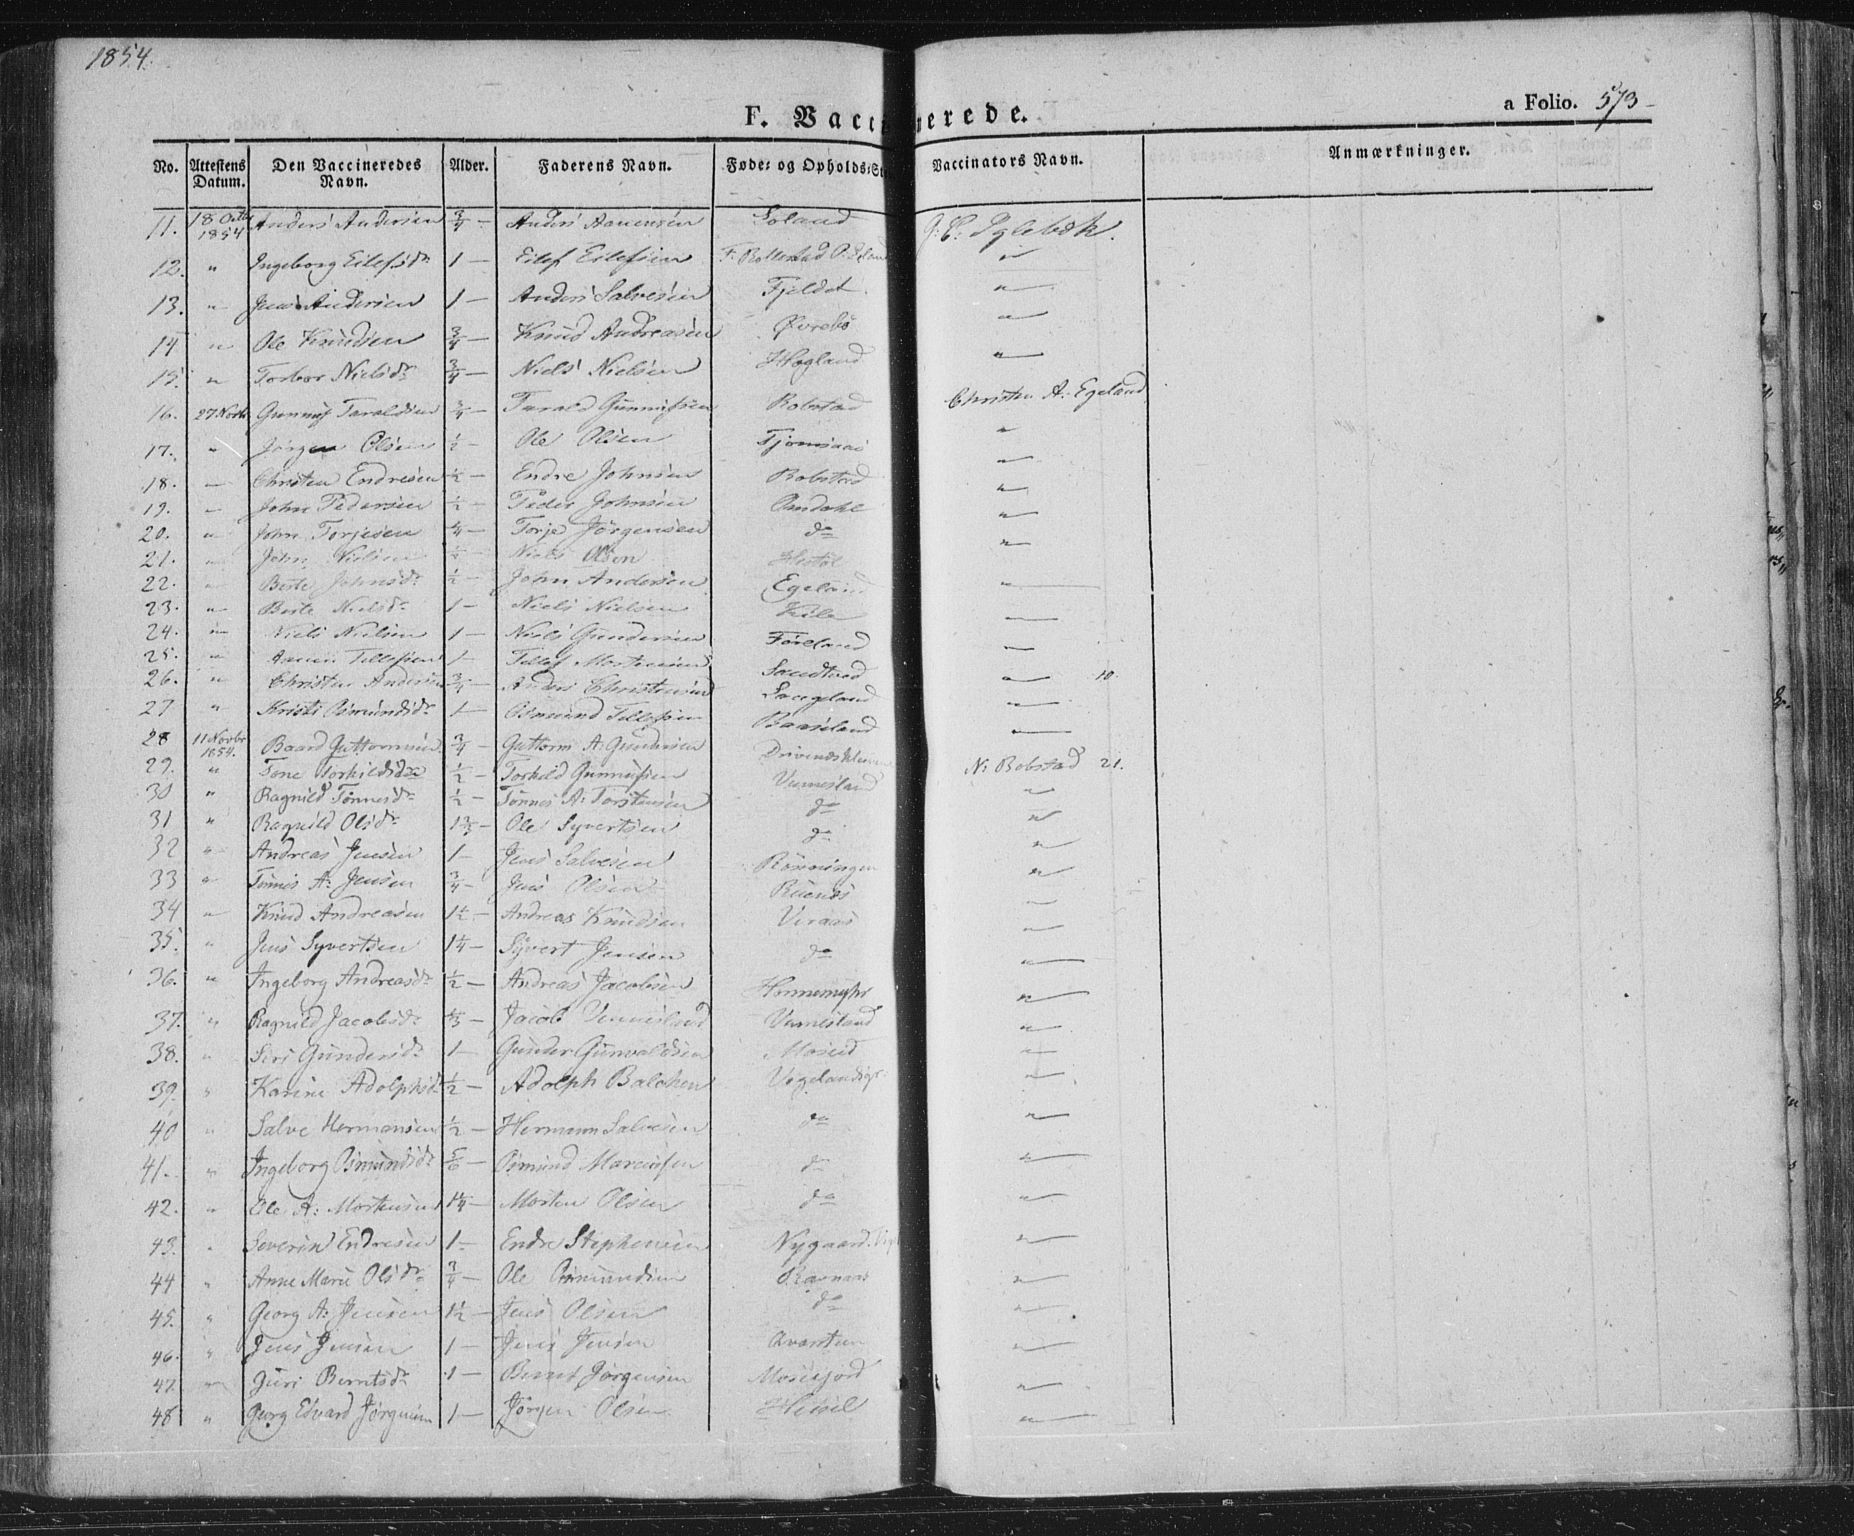 1854.
F. Vaccinerede. a Folio. 573
No. Attestens Datum. Den Vaccineredes Navn. Alder. Faderens Navn. Føde- og Opholds-St Vaccinators Navn. Anmærkninger.
11. 18 Octbr 1854 Anders Andersen 3/4 — Anders Aanensen Soland
12. " Ingeborg Eilefsdr 1 — Eilef Eilefsen
13. " Jens Andersen 1 — Anders Salvesen Fjeldet "
14 " Ole Knudsen 3/4 — Knud Andreasen Øvrebø "
15. " Torbor Nielsdr 3/4 — Niels Nielsen Høgland "
16. 27 Novbr Gunnuf Taraldsen 3/4 — Tarald Gunnufsen Robstad Christen A. Egeland
17. " Jørgen Olsen 1/2 — Ole Olsen "
18. " Christen Endresen 1/2 — Endre Johnsen Robstad "
19. " John Pedersen 1/2 — Peder Johnsen "
20. " John Torjesen — Torje Jørgensen do "
21. " John Nielsen — Niels Olsen "
22. " Berte Johnsdr 1/2 — John Andersen Egeland "
23. " Berte Nielsdr 1 — Niels Nielsen Kile "
24. " Niels Nielsen 1 — Niels Gundersen "
25. " Tellefsen 1 — Tellef Mortensen "
26. " Christen Andersen 3/4 — Anders Christensen Langeland " 10.
27 " Kristi Osmundsdr 1 — Osmund Tellefsen "
28 11 Novbr 1854. Baard Guttormsen 3/4 — Guttorm A. Gundersen
29. " Tone Torkildsdr 1/2 — Torkild Gunnufsen Vennesland N. Bobstad 21.
30 " Ragnild Tønnesdr 1/2 — Tønnes A. Torstensen do "
31 " Ragnild Olsdr — Ole Syvertsen do "
32 " Andreas Jensen 1 — Jens Salvesen Rønningen "
33 " Tønnes A. Jensen 3/4 — Jens Olsen "
34 " Knud Andreasen 1 1/2 — Andreas Knudsen "
35. " Jens Syvertsen 1 1/4 — Syvert Jensen do "
36. " Ingeborg Andreasdr 1/2 — Andreas Jacobsen Honnemyhr "
37. " Ragnild Jacobsdr — Jacob Vennesland Vennesland "
38. " Siri Gundersdr 1 — Gunder Gunvaldsen Moseid "
39. " Karine Adolphsdr 1/2 — Adolph Balchen "
40 " Salve Hermansen 1/2 — Hermann Salvesen do "
41. " Ingeborg Osmundsdr 5/6 — Osmund Marcusen do "
42. " Ole A. Mortensen 1 1/4 — Morten Olsen do "
43. " Severin Endresen 1 — Endre Stephensen Nygaard "
44 " Anne Marie Olsdr 3/4 — Ole Osmundsen "
45. " Georg A. Jensen 1 1/2 — Jens Olsen do "
46. " Jens Jensen 1 — Jens Jensen Qvarsten "
47. " Guri Berntsdr 1 — Bernt Jørgensen "
48 " Georg Edvard Jørgensen 1 — Jørgen Olsen "